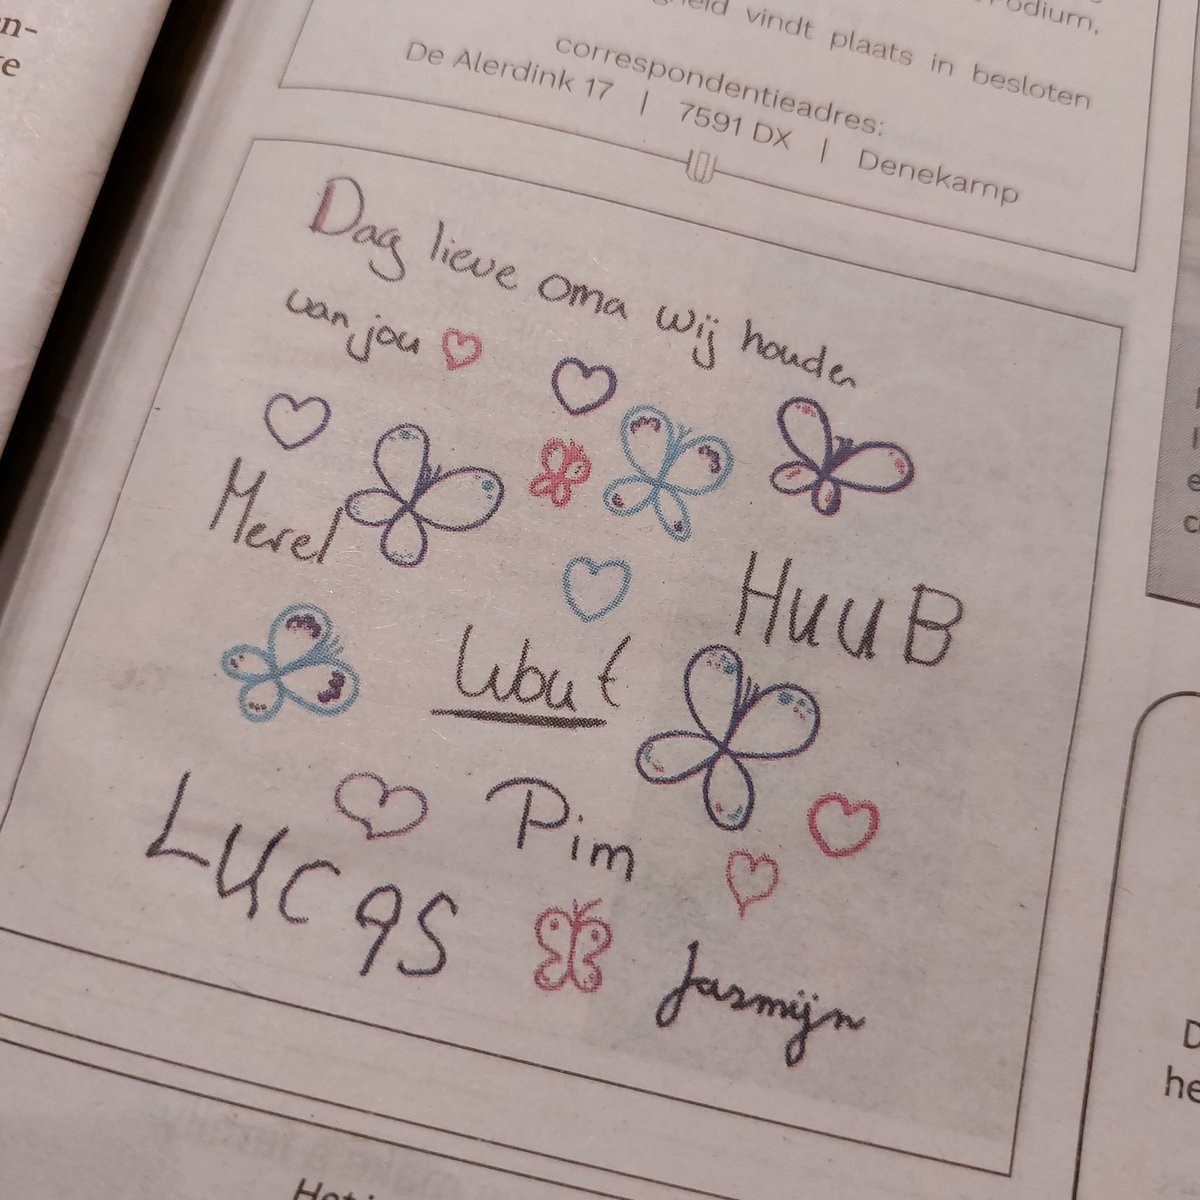 n-
e
Podium,
vindt plaats in besloten
correspondentieadres:
De Alerdink 17 | 7591 DX | Denekamp
Dag lieve oma wij houden
van jou
Merel
HuuB
Wout
Pim
LUCAS
Jasmijn
D
he